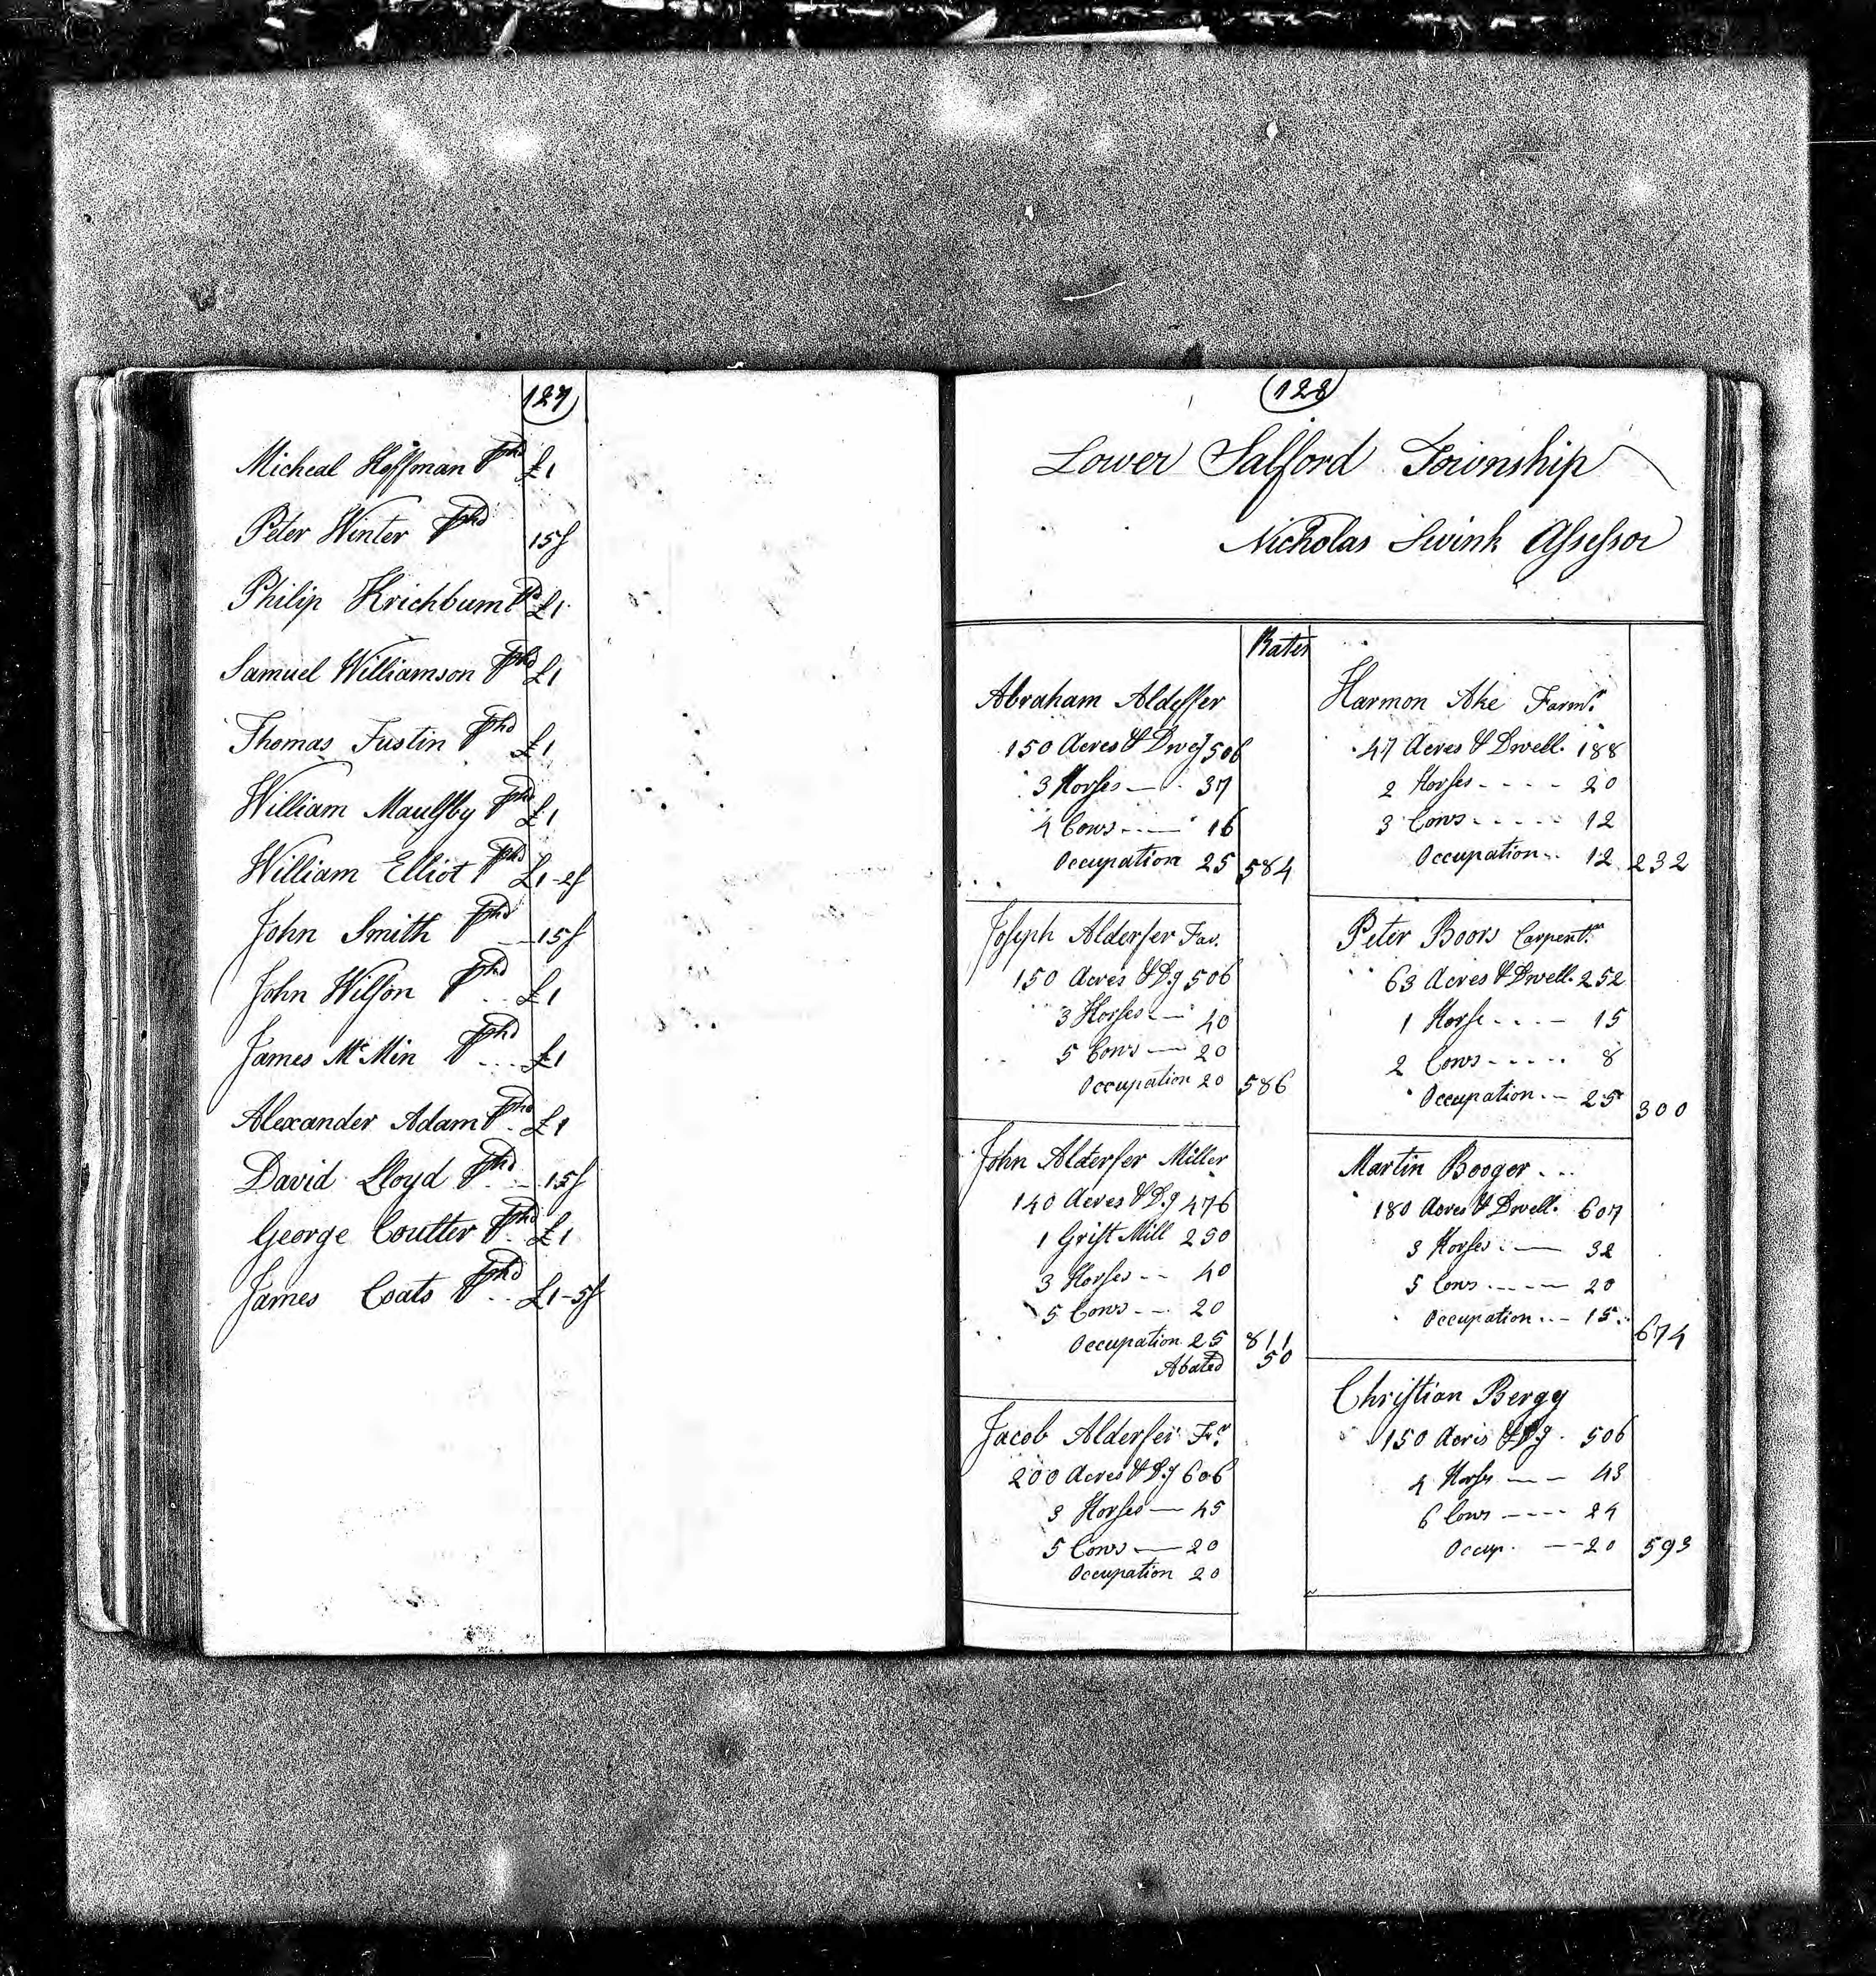 127
Micheal Hoffman Pd £1
Peter Winter Pd 15s
Philip Krichbum Pd £1
Samuel Williamson Pd £1
Thomas Fustin Pd £1
William Maulsby Pd £1
William Elliot Pd £1-2s
John Smith Pd 15s
John Wilson Pd £1
James McMin Pd £1
Alexander Adam Pd £1
David Lloyd Pd 15s
George Coulter Pd £1
James Coats Pd £1-5s
128
Lower Salford Township
Nicholas Swink Assessor
Rates
Abraham Aldeffer
150 Acres & Dwg 506
3 Horses 37
4 Cows 16
Occupation 25 584
Joseph Alderfer Far.
150 Acres & Dg 506
3 Horses 40
5 Cows 20
Occupation 20 586
John Alderfer Miller
140 Acres & Dg 476
1 Grist Mill 250
3 Horses 40
5 Cows 20
Occupation 25 811
Abated 50
Jacob Alderfer Fr.
200 Acres & Dg 606
3 Horses 45
5 Cows 20
Occupation 20
Harmon Ake Farmr.
47 Acres & Dwell. 188
2 Horses 20
3 Cows 12
Occupation 12 232
Peter Boors Carpentr.
63 Acres & Dwell. 252
1 Horse 15
2 Cows 8
Occupation 25 300
Martin Booger
180 Acres & Dwell. 607
3 Horses 32
5 Cows 20
Occupation 15 674
Christian Bergy
150 Acres & Dg 506
4 Horses 43
6 Cows 24
Occup. 20 593